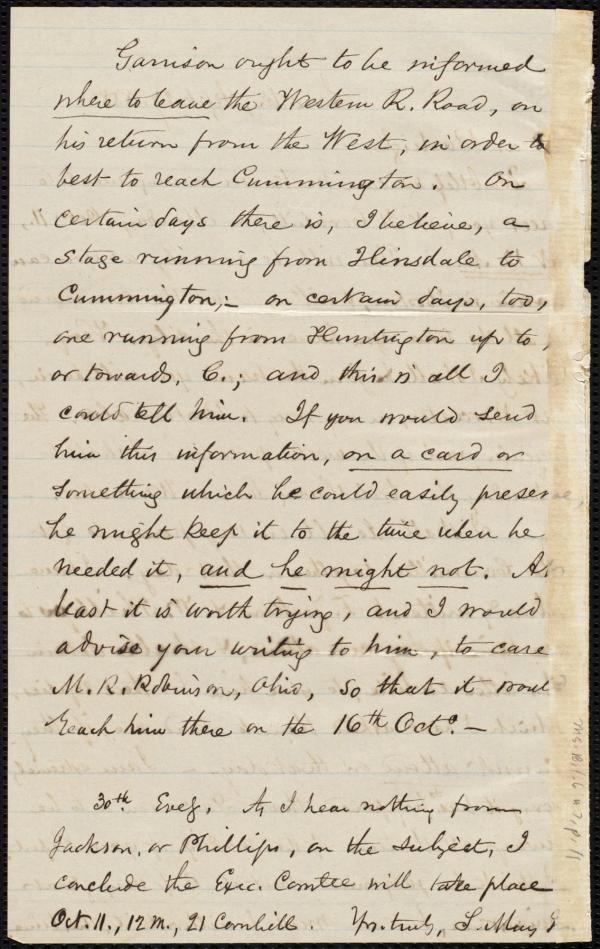 Garrison ought to be informed
where to leave the Western R. Road, on
his return from the West, in order to
best to reach Cummington. On
certain days there is, I believe, a
stage running from Hinsdale to
Cummington;- on certain days, too,
one running from Huntington up to,
or towards, C.; and this is all I
could tell him. If you would send
him this information, on a card or
something which he could easily preserve,
he might keep it to the time when he
needed it, and he might not. At
least it is worth trying, and I would
advise your writing to him, to care
M. R. Robinson, Ohio, so that it would
reach him there on the 16th Oct.-
30th. Eveg. As I hear nothing from
Jackson, or Phillips, on the subject, I
conclude the Exec. Comtee will take place
Oct. 11., 12 M., 21 Cornhill. Yrs. truly, S. May Jr